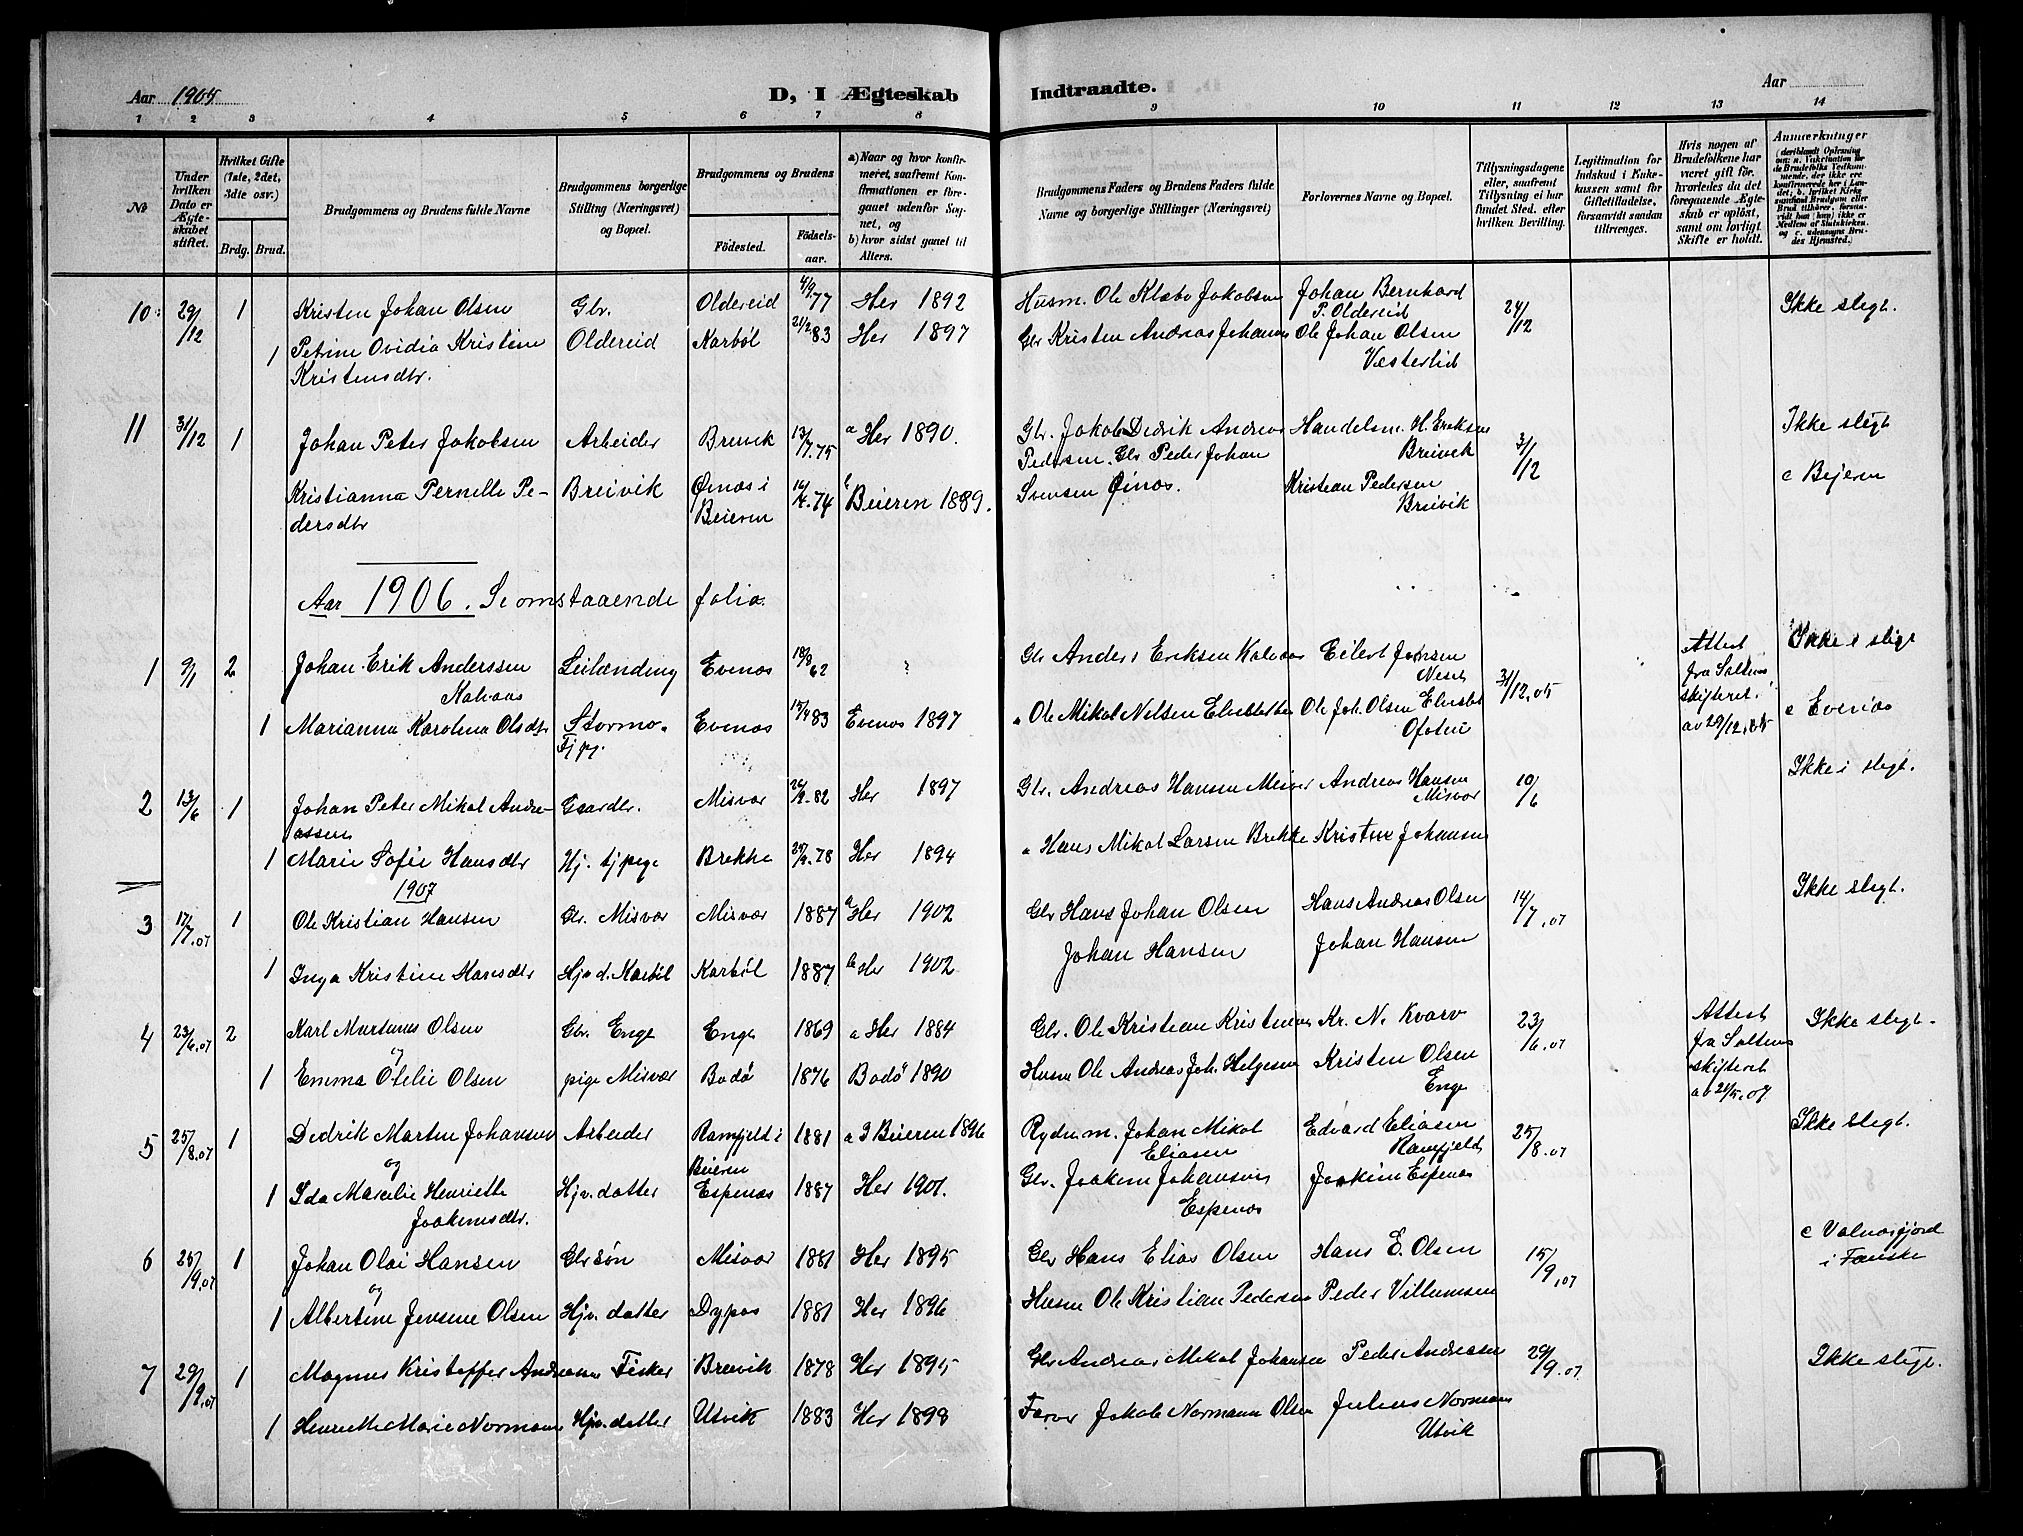 Aar 1905
D, I Ægteskab Indtraadte.
Aar
1 2 3 4 5 6 7 8 9 10 11 12 13 14
№
Under hvilken Dato er Ægteskabet stiftet.
Hvilket Gifte (1ste, 2det, 3die osv.)
Brdg. Brud.
Brudgommens og Brudens fulde Navne
Brudgommens borgerlige Stilling (Næringsvei) og Bopæl.
Brudgommens og Brudens
Fødested.
Fødselsaar.
a) Naar og hvor konfirmeret, saafremt Konfirmationen er foregaaet udenfor Sognet, og
b) hvor sidst gaaet til Alters.
Brudgommens Faders og Brudens Faders fulde Navne og borgerlige Stillinger (Næringsvei)
Forlovernes Navne og Bopæl.
Tillysningsdagene eller, saafremt Tillysning ei har fundet Sted, efter hvilken Bevilling.
Legitimation for Indskud i Enkekassen samt for Giftetilladelse, forsaavidt saadan tiltrænges.
Hvis nogen af Brudefolkene har været gift før, hvorledes da det foregaaende Ægteskab er opløst, samt om lovligt Skifte er holdt.
Anmærkninger
10 29/12 1 Kristen Johan Olsen Gbr. Oldereid 4/9 77 Her 1892 Husm. Ole Klæbo Jakobsen Johan Bernhard P. Oldereid 24/12 Ikke slegt.
1 Petrine Ovidia Kristine Kristensdtr. Oldereid Karbøl 21/2 83 Her 1897 Gbr Kristen Andreas Johansen Ole Johan Olsen Vesterlid
11 31/12 1 Johan Peter Jakobsen Arbeider Breivik 13/7.75 a Her 1890. Gbr. Jakob Dedrik Andreas Pedersen. Handelsm. H. Eriksen Breivik 31/12 Ikke slegt
Kristianna Pernelle Pedersdtr Breivik Øinæs i Beieren 74 Beieren 1889. Gbr Peder Johan Svensen Øinæs. Kristian Pedersen Breivik c Bejeren
Aar 1906. Se omstaaende folio.
1 9/1 2 Johan Erik Anderssen Kalvaas Leilænding Evenæs 18/8 62 Gbr Anders Eriksen Kalvaas Eilert Jensen Neset 31/12.05 Attest fra Saltens skifteret av 29/12.05 Ikke i slegt
1 Marianna Karolina Olsdtr Stormo. Tjpg. Evenæs 15/4 83 Evenæs 1897 " Ole Mikal Nilsen Ole Joh. Olsen Ofoten c Evenæs
2 13/6 1 Johan Peter Mikal Andreassen Gaardbr. Misvær 82 Her 1897 Gbr. Andreas Hansen Misvær Andreas Hansen Misvær 10/6 Ikke i slegt.
1 Marie Sofie Hansdtr Hj. tjpige Brekke 78 Her 1894 " Hans Mikal Larsen Brekke Kristen Johansen
1907
3 17/7.07 1 Ole Kristian Hansen Gbr. Misvær Misvær 1887 a Her 1902 Gbr Hans Johan Olsen Hans Andreas Olsen 14/7.07 Ikke slegt.
1 Inga Kristine Hansdtr Hjv d. Karbøl Karbøl 1887 b Her 1902 Johan Hansen Johan Hansen
4 23/6.07 2 Karl Martinus Olsen Gbr. Enge Enge 1869 a Her 1884 Gbr. Ole Kristian Kristensen Kr. N. Kvarv 23/6.07 Attest fra Saltens skifteret av 21/5.07 Ikke slegt.
og
1 Emma Otelie Olsen pige Misvær Bodø 1876 Bodø 1890 Husm Ole Andreas Joh. Helgesen Kristen Olsen Enge
5 25/8.07 1 Dedrik Martin Johansen Arbeider Ramfjeld i Beieren 1881 a I Beieren 1896 Rydn.m. Johan Mikal Eliasen Edvard Eliasen Ramfjeld 25/8.07 Ikke slegt.
og
1 Ida Marcelie Henriette Joakimsdtr. Hjv. datter Espenæs 1887 Her 1901. Gbr. Joakim Johansen Espenæs Joakim Espenæs
6 25/9.07 1 Johan Olai Hansen Gbr søn Misvær 1881 Her 1895 Gbr Hans Elias Olsen Hans E. Olsen 15/9.07 c Valnæsfjord i Fauske
og
1 Albertine Jensine Olsen Hjv. datter Dypos 1881 Her 1896 Husm Ole Kristian Pedersen Peder Villumsen
7 29/9.07 1 Magnus Kristoffer Andreasen Fisker Breivik 1878 Her 1895 Gbr Andreas Mikal Johansen Peder Andreasen 29/9.07 Ikke slegt.
1 Henriette Marie Normann Hjv. datter Utvik 1883 Her 1898 Farver Jakob Normann Olsen Julius Normann Utvik